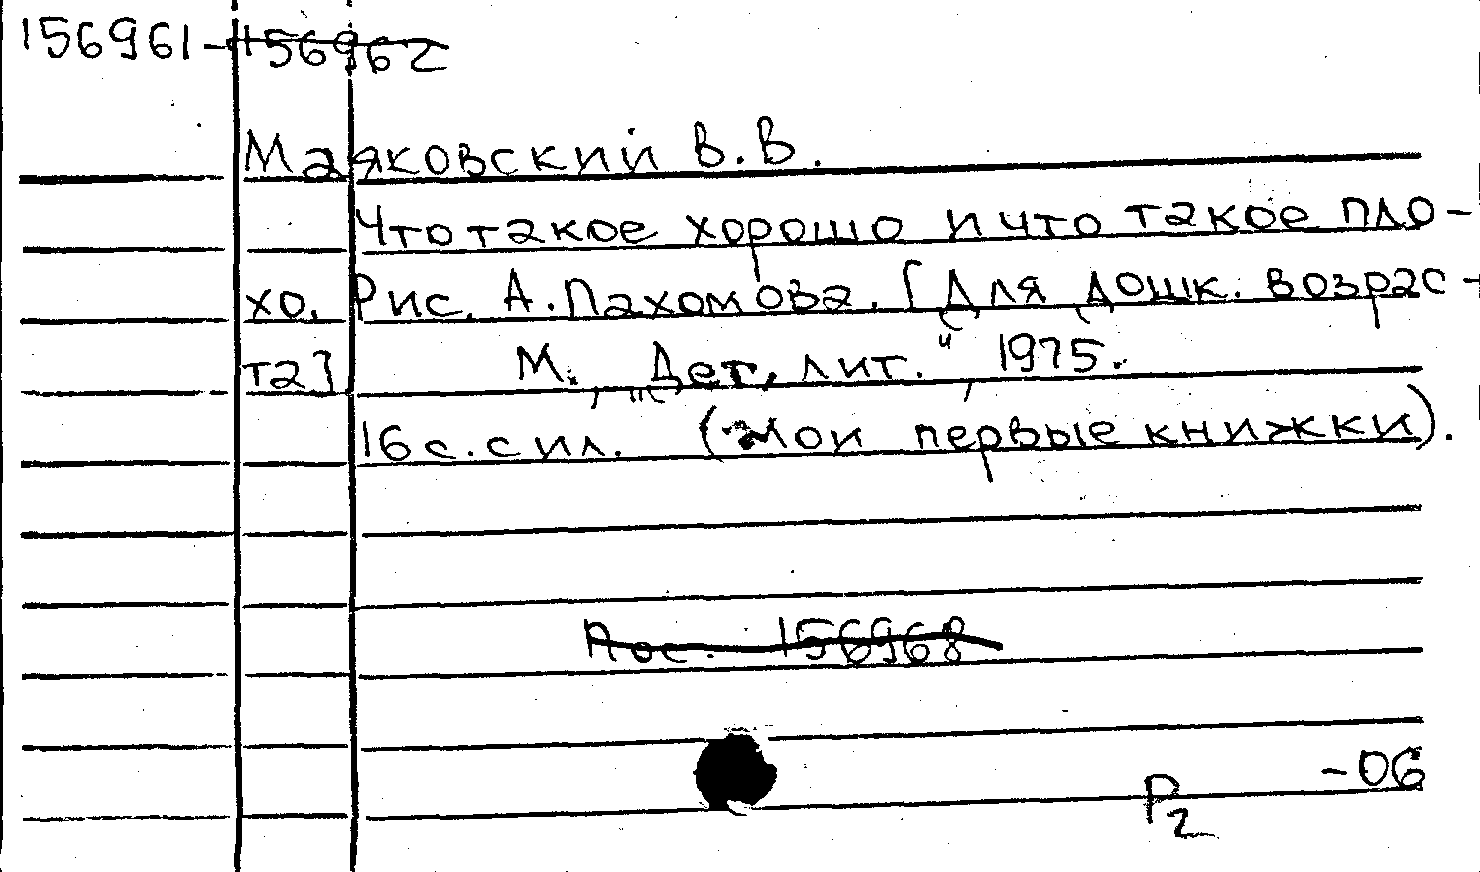 156961-156962
Маяковский В.В.
Что такое хорошо и что такое пло-
хо. Рис. А. Пахомова. [Для дошк. возрас-
та] М., „Дет. лит.", 1975.
16 с. с ил. (Мои первые книжки).
Пос. 156968
-06
Р2